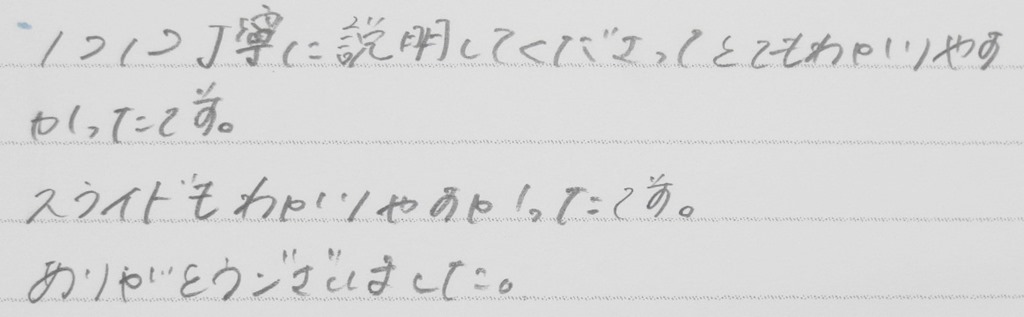 1つ1つ丁寧に説明してくださってとてもわかりやす
かったです。
スライドもわかりやすかったです。
ありがとうございました。